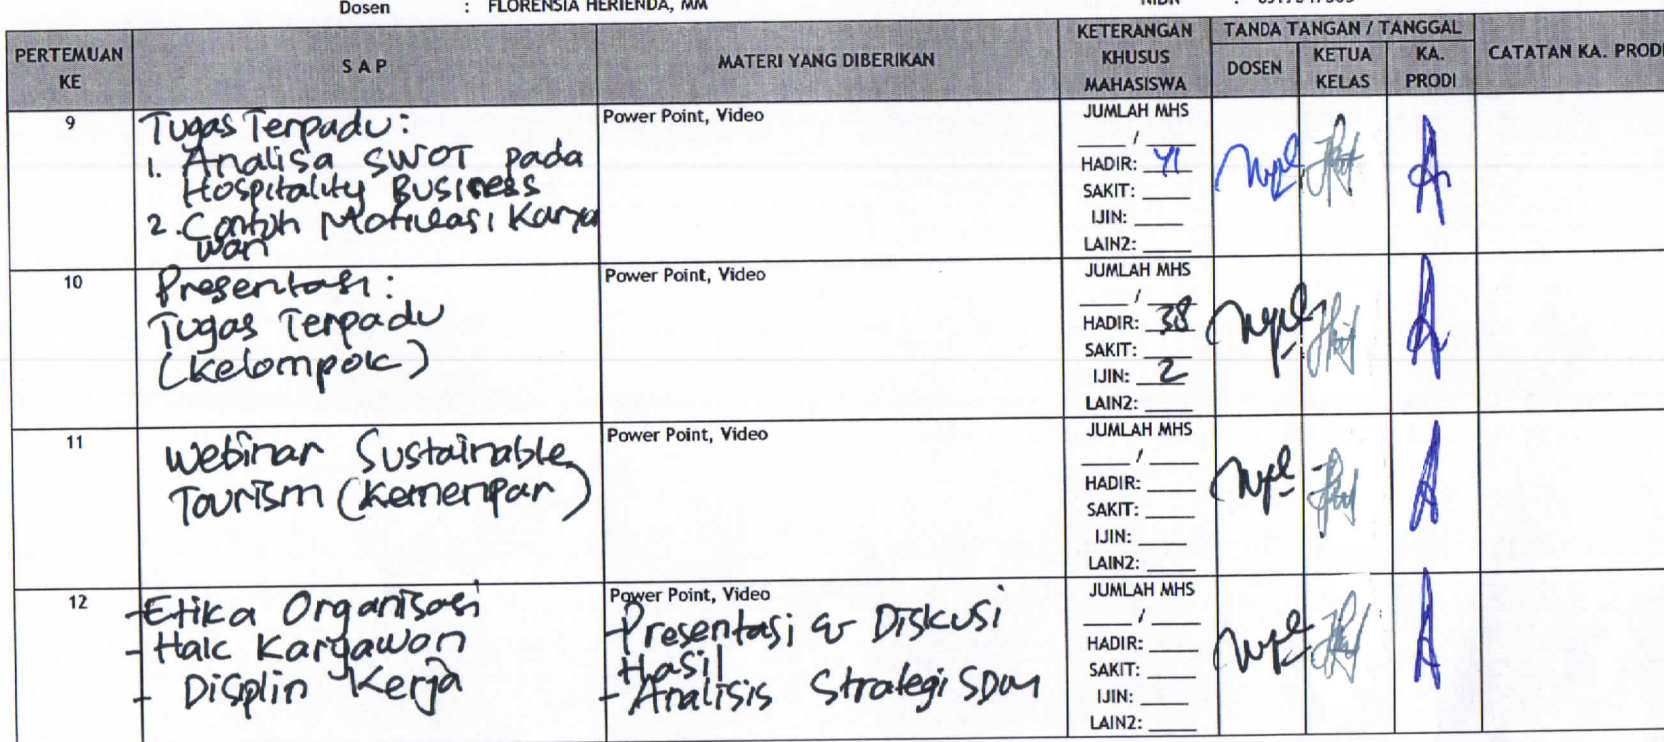 Dosen : FLORENSIA HERIENDA, MM
PERTEMUAN KE
S A P
MATERI YANG DIBERIKAN
KETERANGAN KHUSUS MAHASISWA
TANDA TANGAN / TANGGAL
DOSEN
KETUA KELAS
KA. PRODI
CATATAN KA. PRODI
9
Tugas Terpadu:
1. Analisa SWOT pada
Hospitality Business
2. Contoh Motivasi Karya
wan
Power Point, Video
JUMLAH MHS
____ / ____
HADIR: 41
SAKIT: ____
IJIN: ____
LAIN2: ____
10
Presentasi:
Tugas Terpadu
(Kelompok)
Power Point, Video
JUMLAH MHS
____ / ____
HADIR: 38
SAKIT: ____
IJIN: 2
LAIN2: ____
11
Webinar Sustainable
Tourism (Kemenpar)
Power Point, Video
JUMLAH MHS
____ / ____
HADIR: ____
SAKIT: ____
IJIN: ____
LAIN2: ____
12
- Etika Organisasi
- Hak Karyawan
- Displin Kerja
Power Point, Video
- Presentasi & Diskusi
Hasil
- Analisis Strategi SDM
JUMLAH MHS
____ / ____
HADIR: ____
SAKIT: ____
IJIN: ____
LAIN2: ____